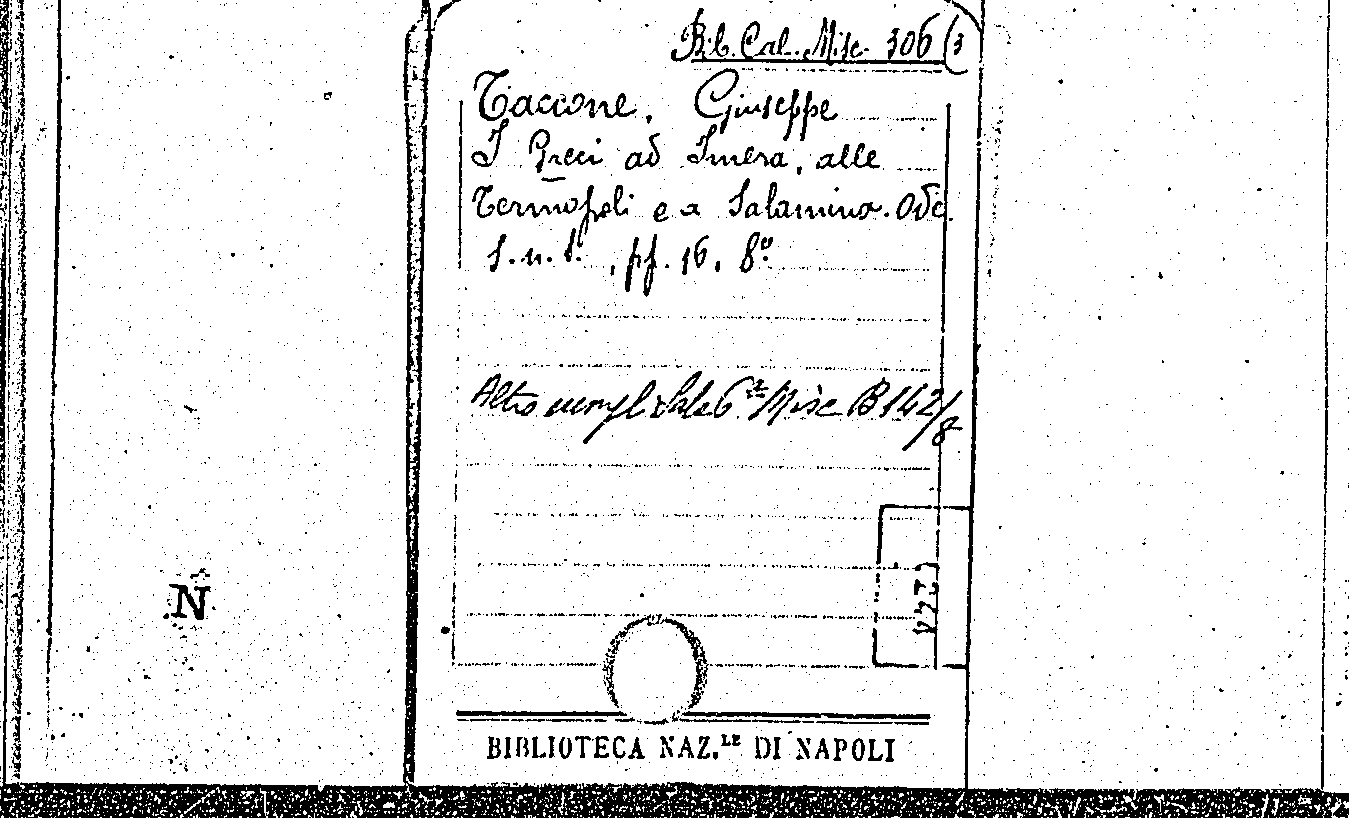 Bib. Cal. Misc. 306 (3
Taccone, Giuseppe
I Greci ad Imera, alle
Termopoli e a Salamina. Odi.
s. n. t., pp. 16. 8º
Altro esempl. Sala 6.ª Misc B 142/8
N
BIBLIOTECA NAZ.LE DI NAPOLI